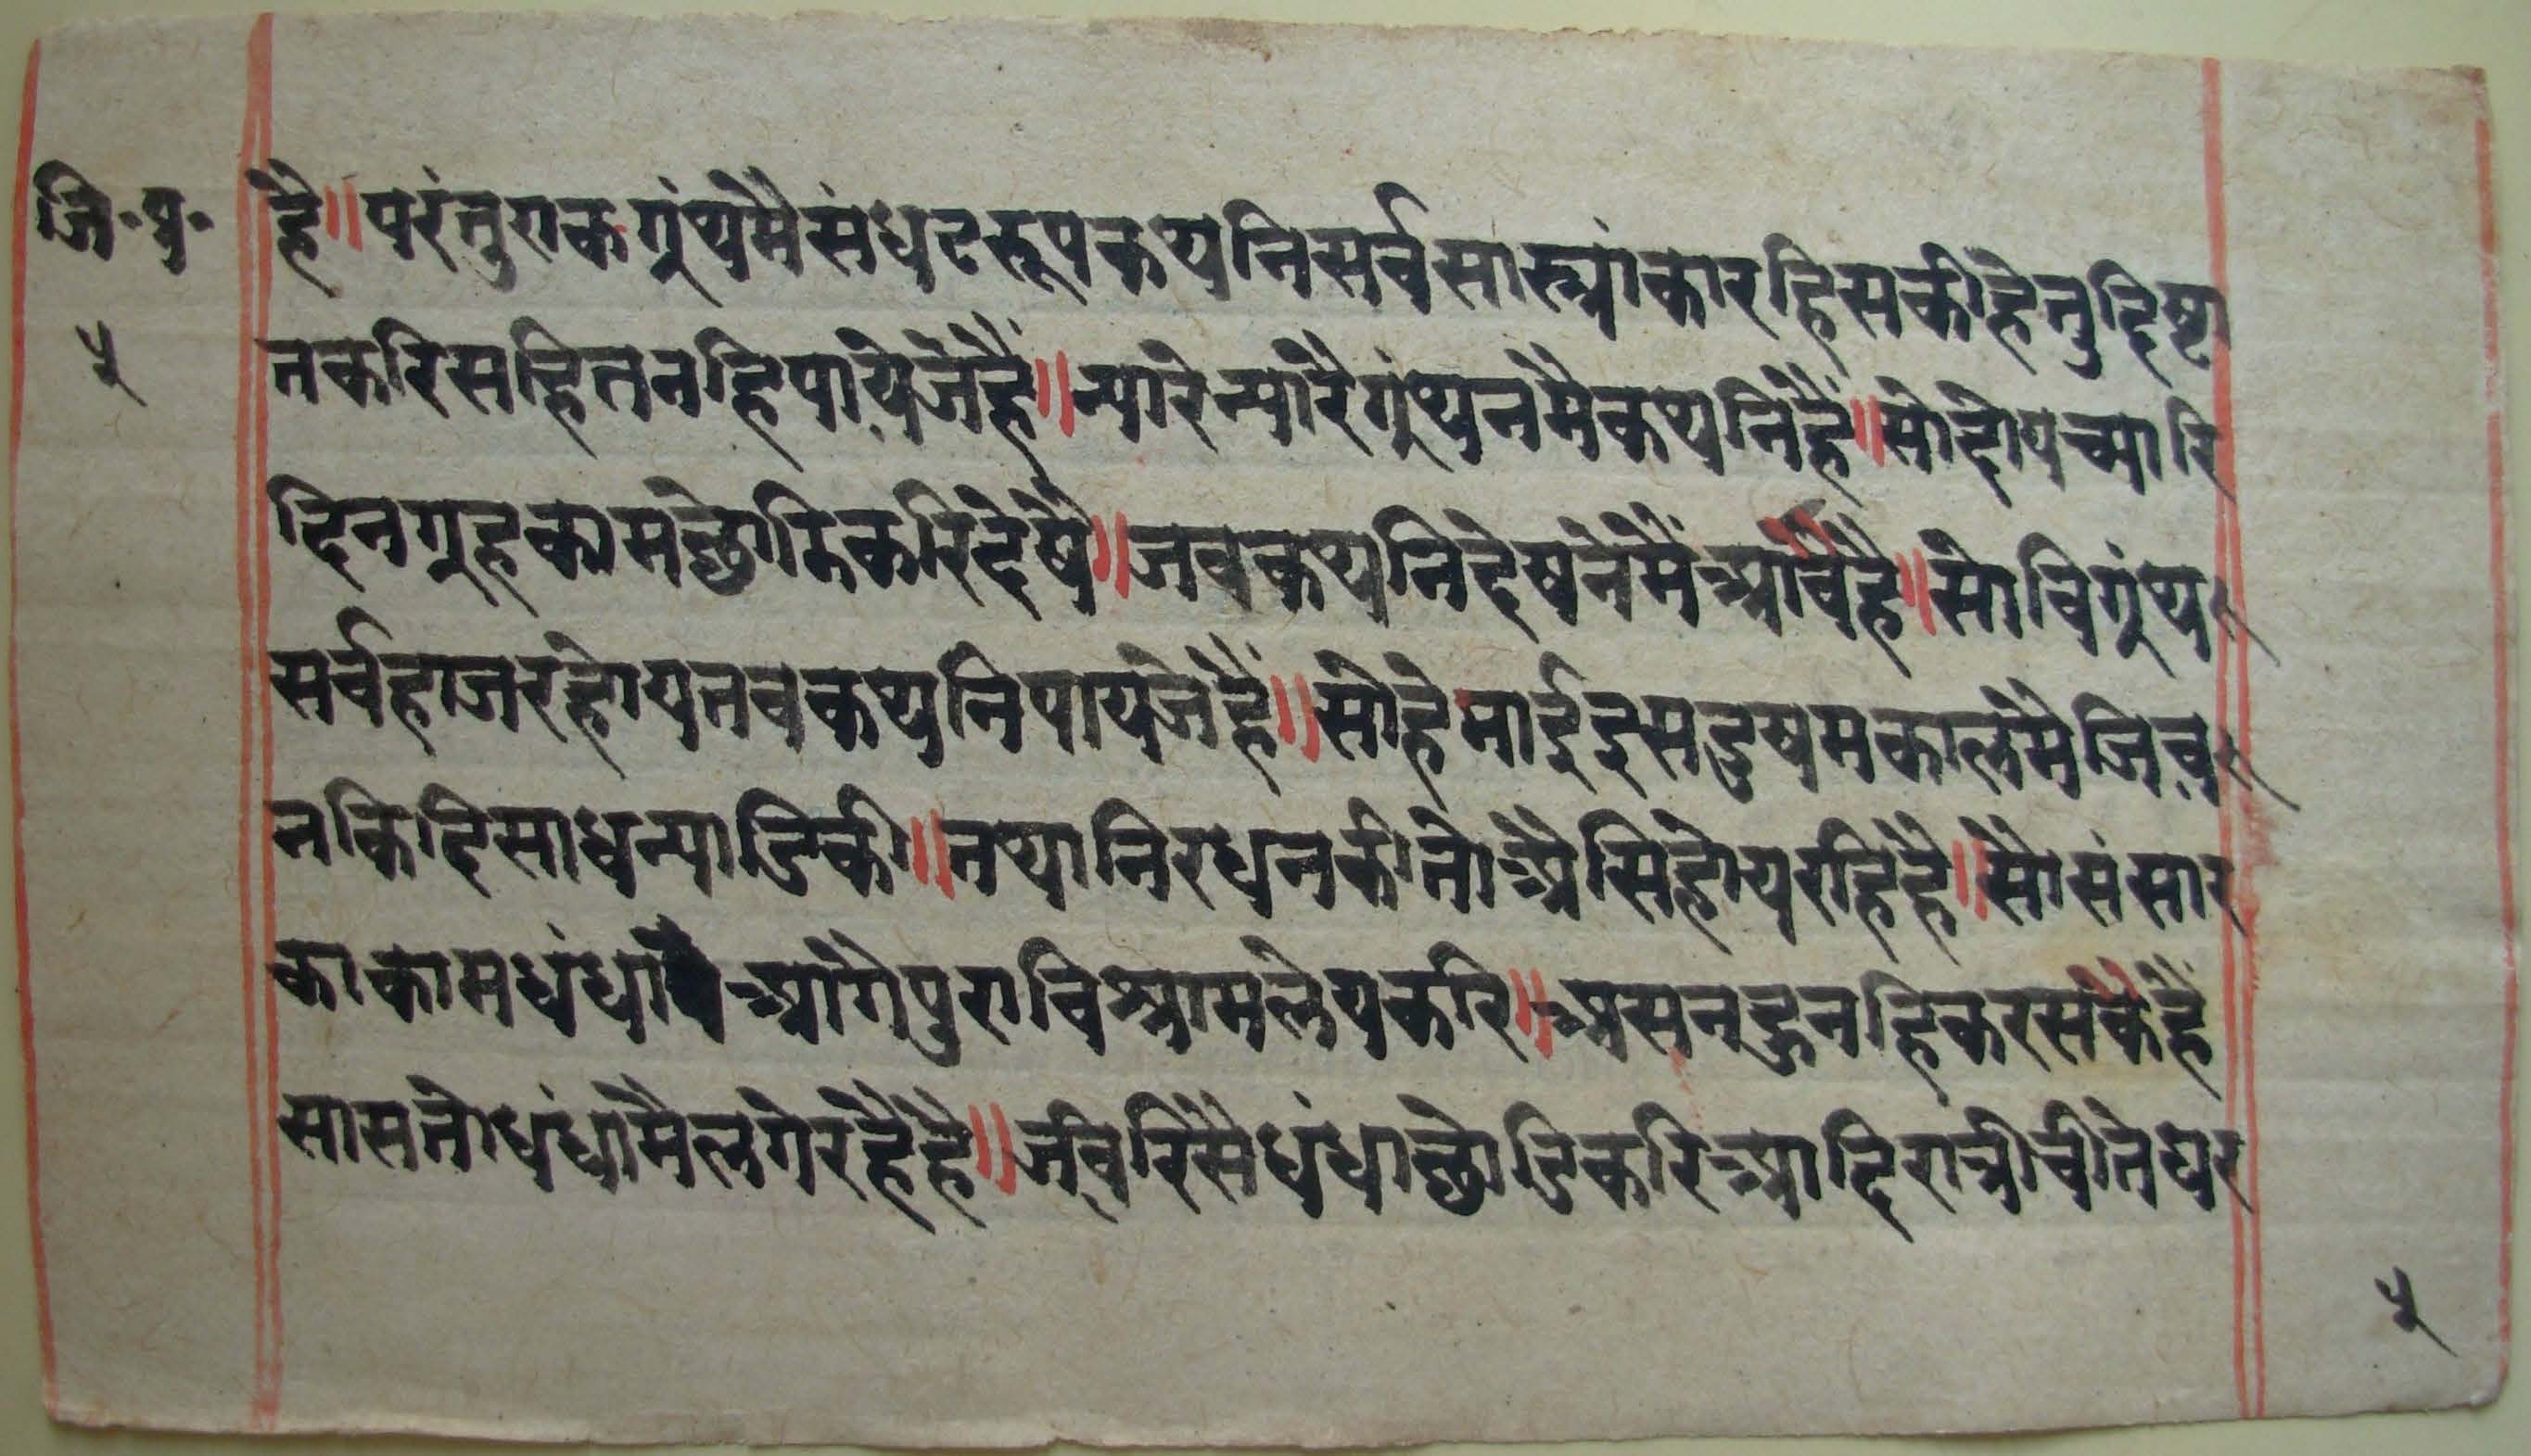 जि॰प्र॰
५
है॥परंतुएकग्रंथमैसंघटरूपकथनिसर्वसास्त्रांकारहिसकीहेतुद्रिष्टा
तकरिसहितनहिपायेजेहैं॥न्यारेन्यारेग्रंथनमैकथनिहैं॥सोदोयच्यारि
दिनगृहकामछोडिकरिदेषै॥जबकथनिदेषनेमैंआवैहै॥सोविग्रंथ
सर्वहाजरहोयतबकथनिपायजेहैं॥सोहेभाईइसदुषमकालमैजिव
नकिदिसाधन्याडिकी॥तथानिरधनकीतोअैसिहोयरहिहै॥सोसंसार
काकामधंधाआगैपुराविश्रामलेयकरि॥प्रसनहुनहिकरसकैहैं
सासतोधंधामैलगेरहैहै॥जीवरिसैधंधाछोडिकरिआदिरात्रीवीतेघर
५